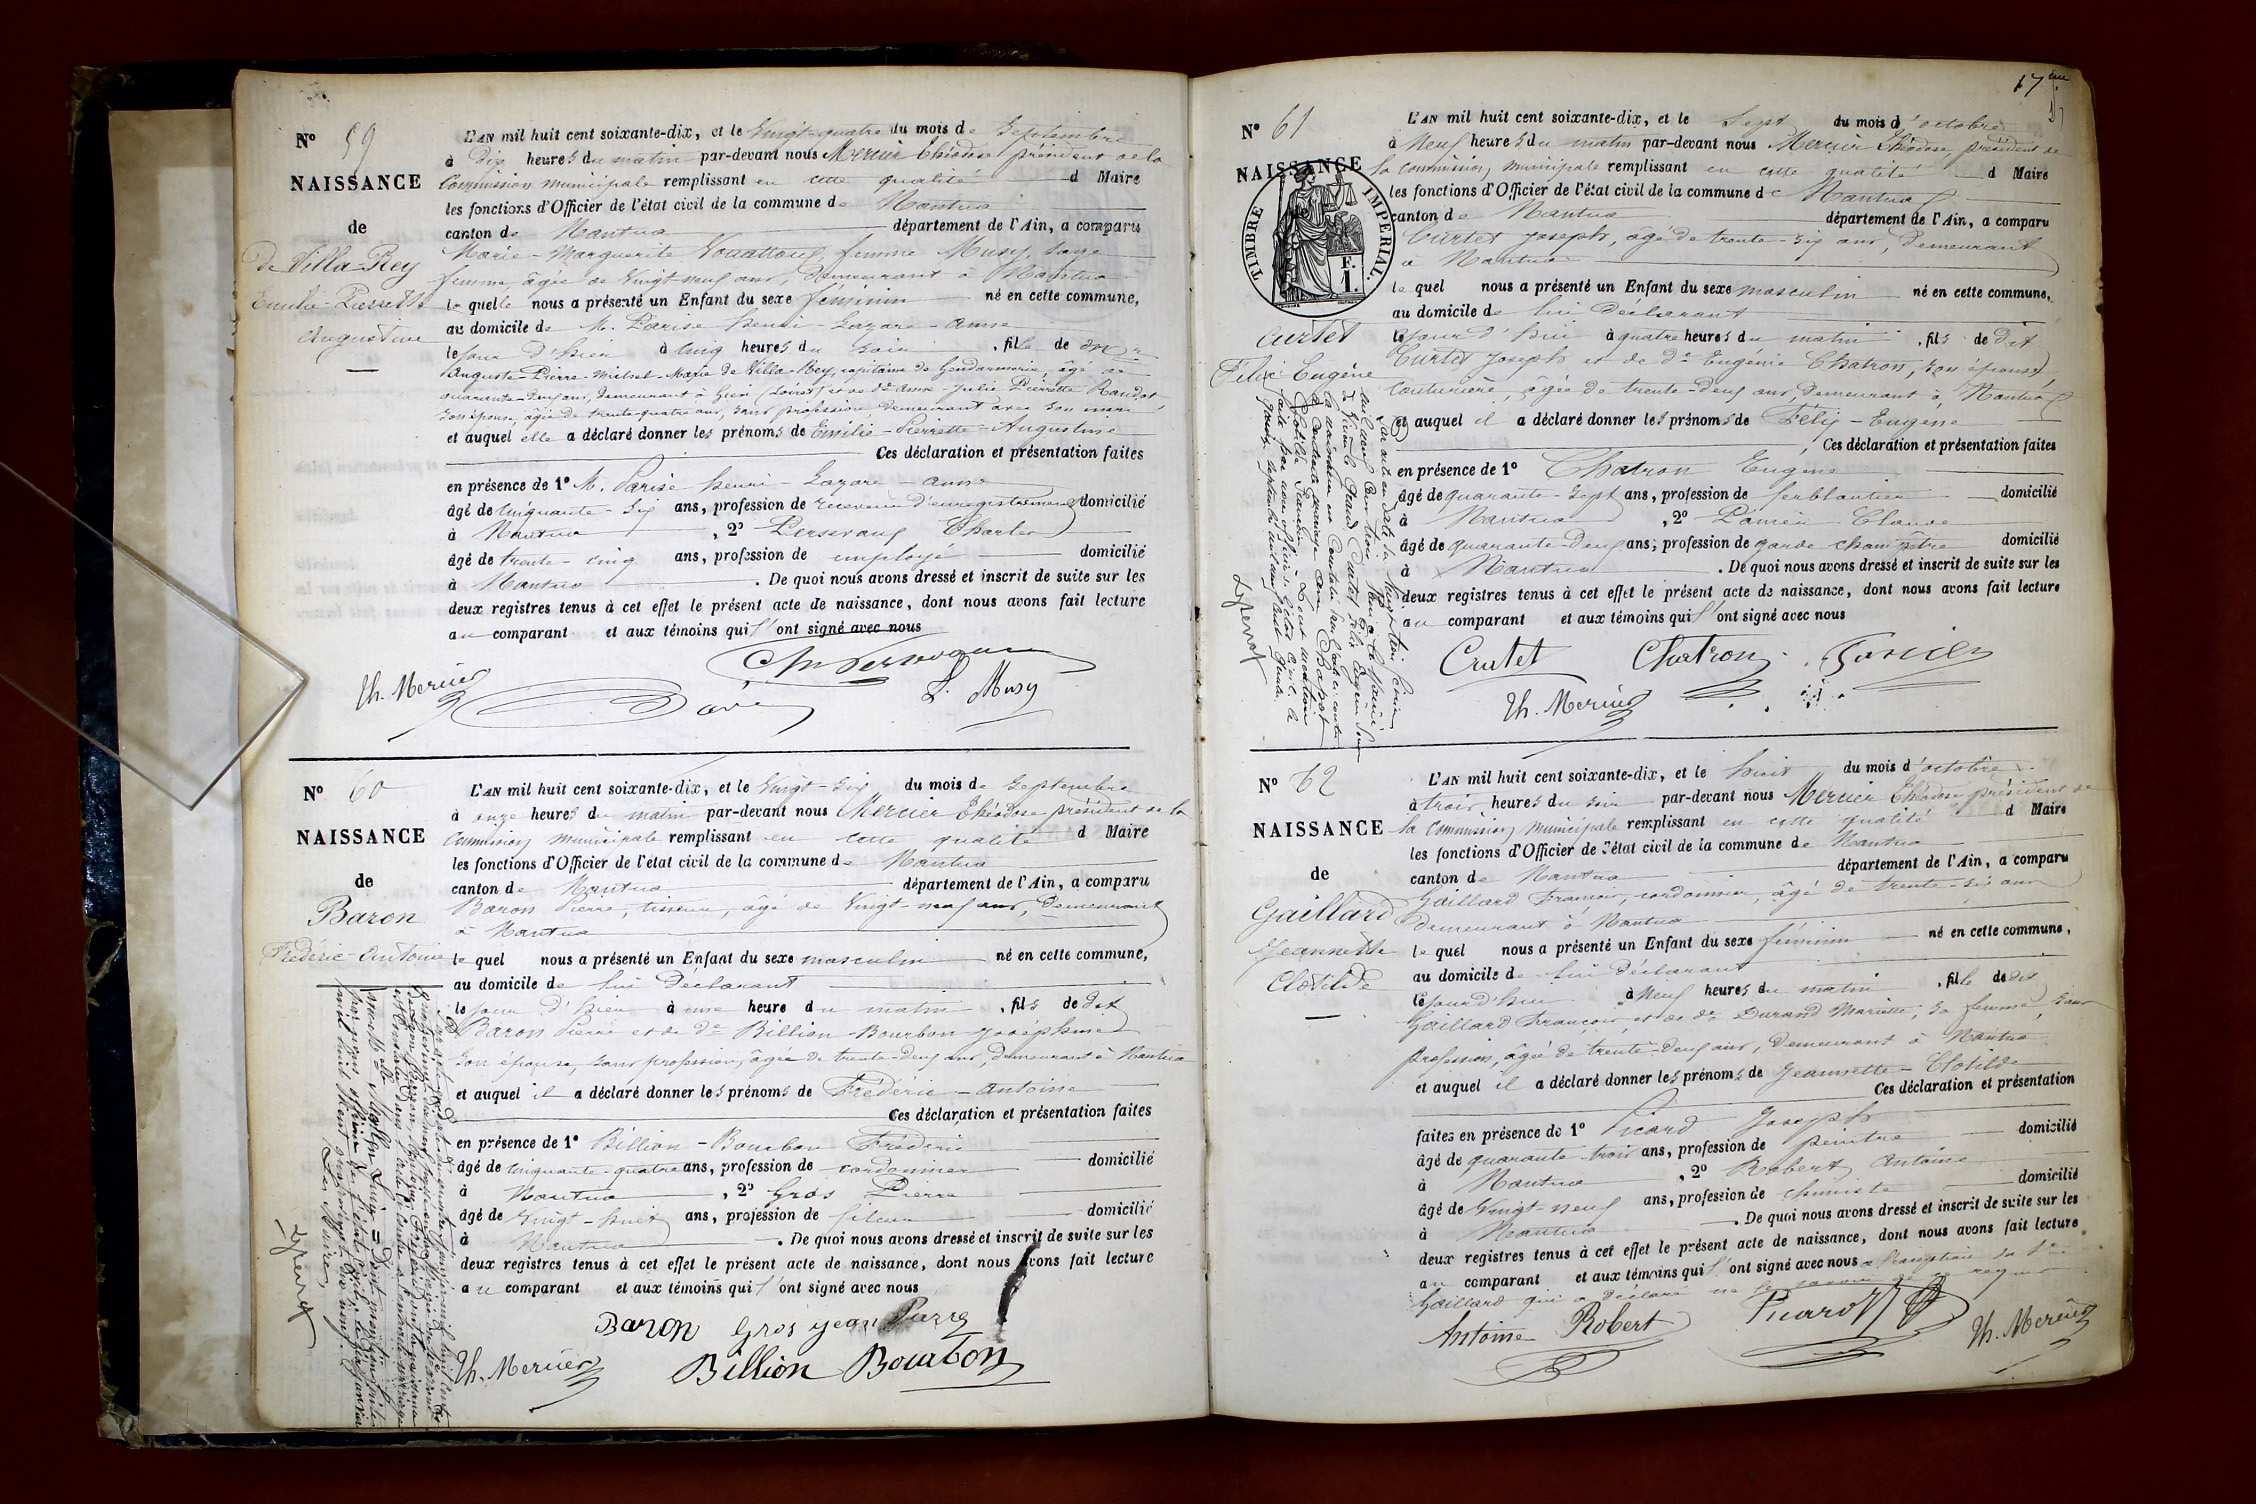 N° 59
NAISSANCE
de
de Villa-Rey
Emilie-Pierrette
Augustine
L'AN mil huit cent soixante-dix, et le Vingt-quatre du mois de Septembre
à Dix heures du matin par-devant nous Mercier Théodose président de la
Commission municipale remplissant en cette qualité d Maire
les fonctions d'Officier de l'état civil de la commune de Nantua
canton de Nantua département de l'Ain, a comparu
Marie-Marguerite femme Musy, sage
femme, âgée de Vingt-neuf ans, demeurant à Nantua
le quelle nous a présenté un Enfant du sexe féminin né en cette commune,
au domicile de M. Parise henri-Lazare-anne
le jour d'hier à cinq heures du soir, fille de
Auguste-Pierre-Michel-Marie de Villa-Rey, capitaine de Gendarmerie, âgé de
quarante-deux ans, demeurant à Gien (Loiret) et de de anne-Julie Pierrette Randot
son épouse, âgée de trente-quatre ans, sans profession demeurant avec son mari
et auquel elle a déclaré donner les prénoms de Emilie-Pierrette-Augustine
Ces déclaration et présentation faites
en présence de 1° M. Parise henri-Lazare-anne
âgé de cinquante-six ans, profession de receveur d'enregistrement domicilié
à Nantua, 2° Charles
âgé de trente-cinq ans, profession de employé domicilié
à Nantua. De quoi nous avons dressé et inscrit de suite sur les
deux registres tenus à cet effet le présent acte de naissance, dont nous avons fait lecture
au comparant et aux témoins qui l'ont signé avec nous
Th. Mercier
M. Musy
N° 60
NAISSANCE
de
Baron
Frédéric-Antoine
L'AN mil huit cent soixante-dix, et le Vingt-six du mois de Septembre
à onze heures du matin par-devant nous Mercier Théodose président de la
Commission municipale remplissant en cette qualité d Maire
les fonctions d'Officier de l'état civil de la commune de Nantua
canton de Nantua département de l'Ain, a comparu
Baron Pierre, tisseur, âgé de Vingt-neuf ans, demeurant
à Nantua
le quel nous a présenté un Enfant du sexe masculin né en cette commune,
au domicile de lui Déclarant
le jour d'hier à une heure du matin, fils de dit
Baron Pierre et de de Billion-Bourbon Joséphine
son épouse, sans profession, âgée de trente-deux ans, demeurant à Nantua
et auquel il a déclaré donner les prénoms de Frédéric-Antoine
Ces déclaration et présentation faites
en présence de 1° Billion-Bourbon Frédéric
âgé de cinquante-quatre ans, profession de cordonnier domicilié
à Nantua, 2° Gros Pierre
âgé de Vingt-huit ans, profession de fileur domicilié
à Nantua. De quoi nous avons dressé et inscrit de suite sur les
deux registres tenus à cet effet le présent acte de naissance, dont nous avons fait lecture
au comparant et aux témoins qui l'ont signé avec nous
Baron Gros Jean Pierre
Th. Mercier Billion Bourbon
17
N° 61
NAISSANCE
TIMBRE IMPERIAL
F.
1.
Curtet
Félix-Eugène
L'AN mil huit cent soixante-dix, et le Sept du mois d'octobre
à Neuf heures du matin par-devant nous Mercier Théodose président de
la Commission municipale remplissant en cette qualité d Maire
les fonctions d'Officier de l'état civil de la commune de Nantua
canton de Nantua département de l'Ain, a comparu
Curtet Joseph, âgé de trente-six ans, demeurant
à Nantua
le quel nous a présenté un Enfant du sexe masculin né en cette commune,
au domicile de lui déclarant
le jour d'hui à quatre heures du matin, fils de dit
Curtet Joseph et de de Eugénie Chatron, son épouse,
couturière, âgée de trente-deux ans, demeurant à Nantua
et auquel il a déclaré donner les prénoms de Félix-Eugène
Ces déclaration et présentation faites
en présence de 1° Chatron Eugène
âgé de quarante-sept ans, profession de ferblantier domicilié
à Nantua, 2° Claude
âgé de quarante-deux ans, profession de garde champêtre domicilié
à Nantua. De quoi nous avons dressé et inscrit de suite sur les
deux registres tenus à cet effet le présent acte de naissance, dont nous avons fait lecture
au comparant et aux témoins qui l'ont signé avec nous
Curtet Chatron
Th. Mercier
N° 62
NAISSANCE
de
Gaillard
Jeannette
Clotilde
L'AN mil huit cent soixante-dix, et le huit du mois d'octobre
à trois heures du soir par-devant nous Mercier Théodose président de
la Commission municipale remplissant en cette qualité d Maire
les fonctions d'Officier de l'état civil de la commune de Nantua
canton de Nantua département de l'Ain, a comparu
Gaillard François, cordonnier, âgé de trente-six ans
demeurant à Nantua
le quel nous a présenté un Enfant du sexe féminin né en cette commune,
au domicile de lui déclarant
le jour d'hui à Neuf heures du matin, fille de dit
Gaillard François et de de Durand Mariette, sa femme, sans
profession, âgée de trente-deux ans, demeurant à Nantua
et auquel il a déclaré donner les prénoms de Jeannette-Clotilde
Ces déclaration et présentation
faites en présence de 1° Picard Joseph
âgé de quarante-trois ans, profession de peintre domicilié
à Nantua, 2° Robert Antoine
âgé de Vingt-neuf ans, profession de chimiste domicilié
à Nantua. De quoi nous avons dressé et inscrit de suite sur les
deux registres tenus à cet effet le présent acte de naissance, dont nous avons fait lecture
au comparant et aux témoins qui l'ont signé avec nous à l'exception du
Gaillard qui a déclaré ne le savoir de ce requis
Antoine Robert Picard Th. Mercier